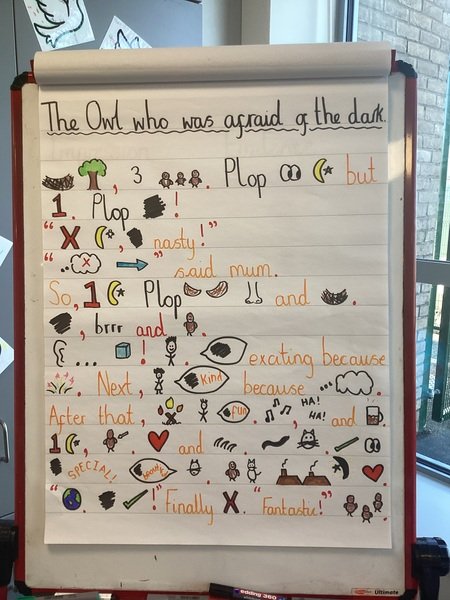 The Owl who was afraid of the dark.
, 3 . Plop but
1. Plop !
"X , nasty!"
"... X " said mum.
So, 1 Plop and .
, brrr and .
... ! . exciting because
. Next, kind because ... .
After that, fun. , HA! HA! , and .
1 , . and . .
" SPECIAL! beautiful . .
" !" Finally X. "Fantastic!" .
edding 360
Ultimate